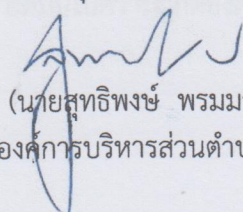 (นายสุทธิพงษ์ พรมม
องค์การบริหารส่วนตำบ